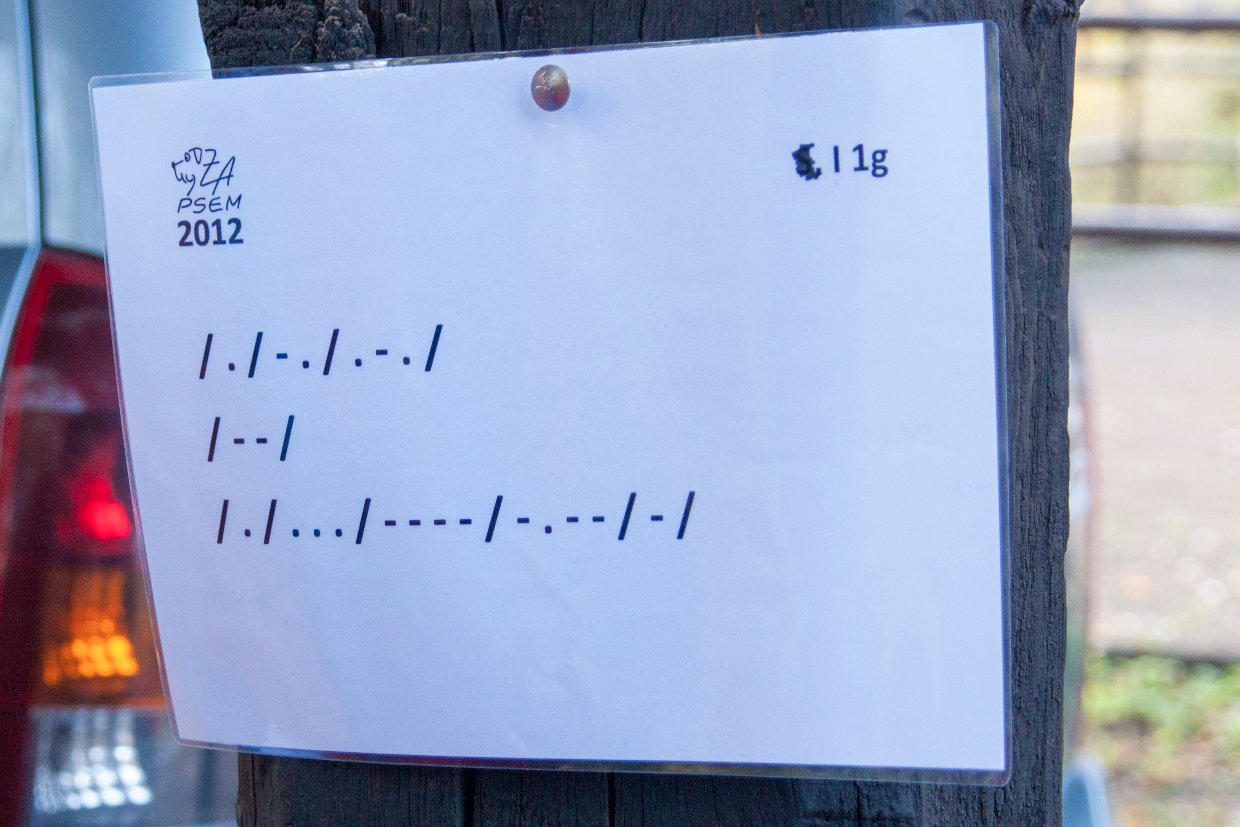 PSEM
2012
I 1g
/./-./.-./
/--/
/./.../----/-.--/-/